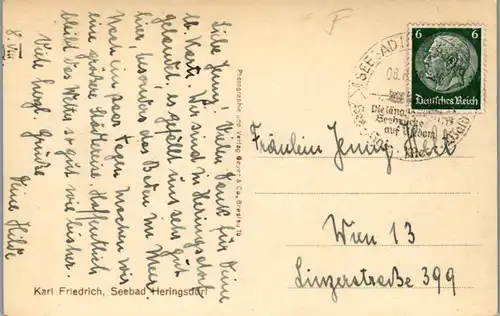 8. VIII
Liebe Jenny! Vielen Dank für Deine
lb. Karte. Wir sind in Heringsdorf
gelandet, es gefällt uns sehr gut
hier, besonders das Baden im Meer.
Nach ein paar Tagen machen wir
eine größere Radreise. Hoffentlich
bleibt das Wetter so gut wie bisher.
Viele herzl. Grüße
Deine Hilde
Karl Friedrich, Seebad Heringsdorf
Photographie und Verlag
& Co., Breslau 10
6 6
Deutsches Reich
SEEBAD
08.
auf Usedom
Fräulein Jenny
Wien 13
Linzerstraße 399